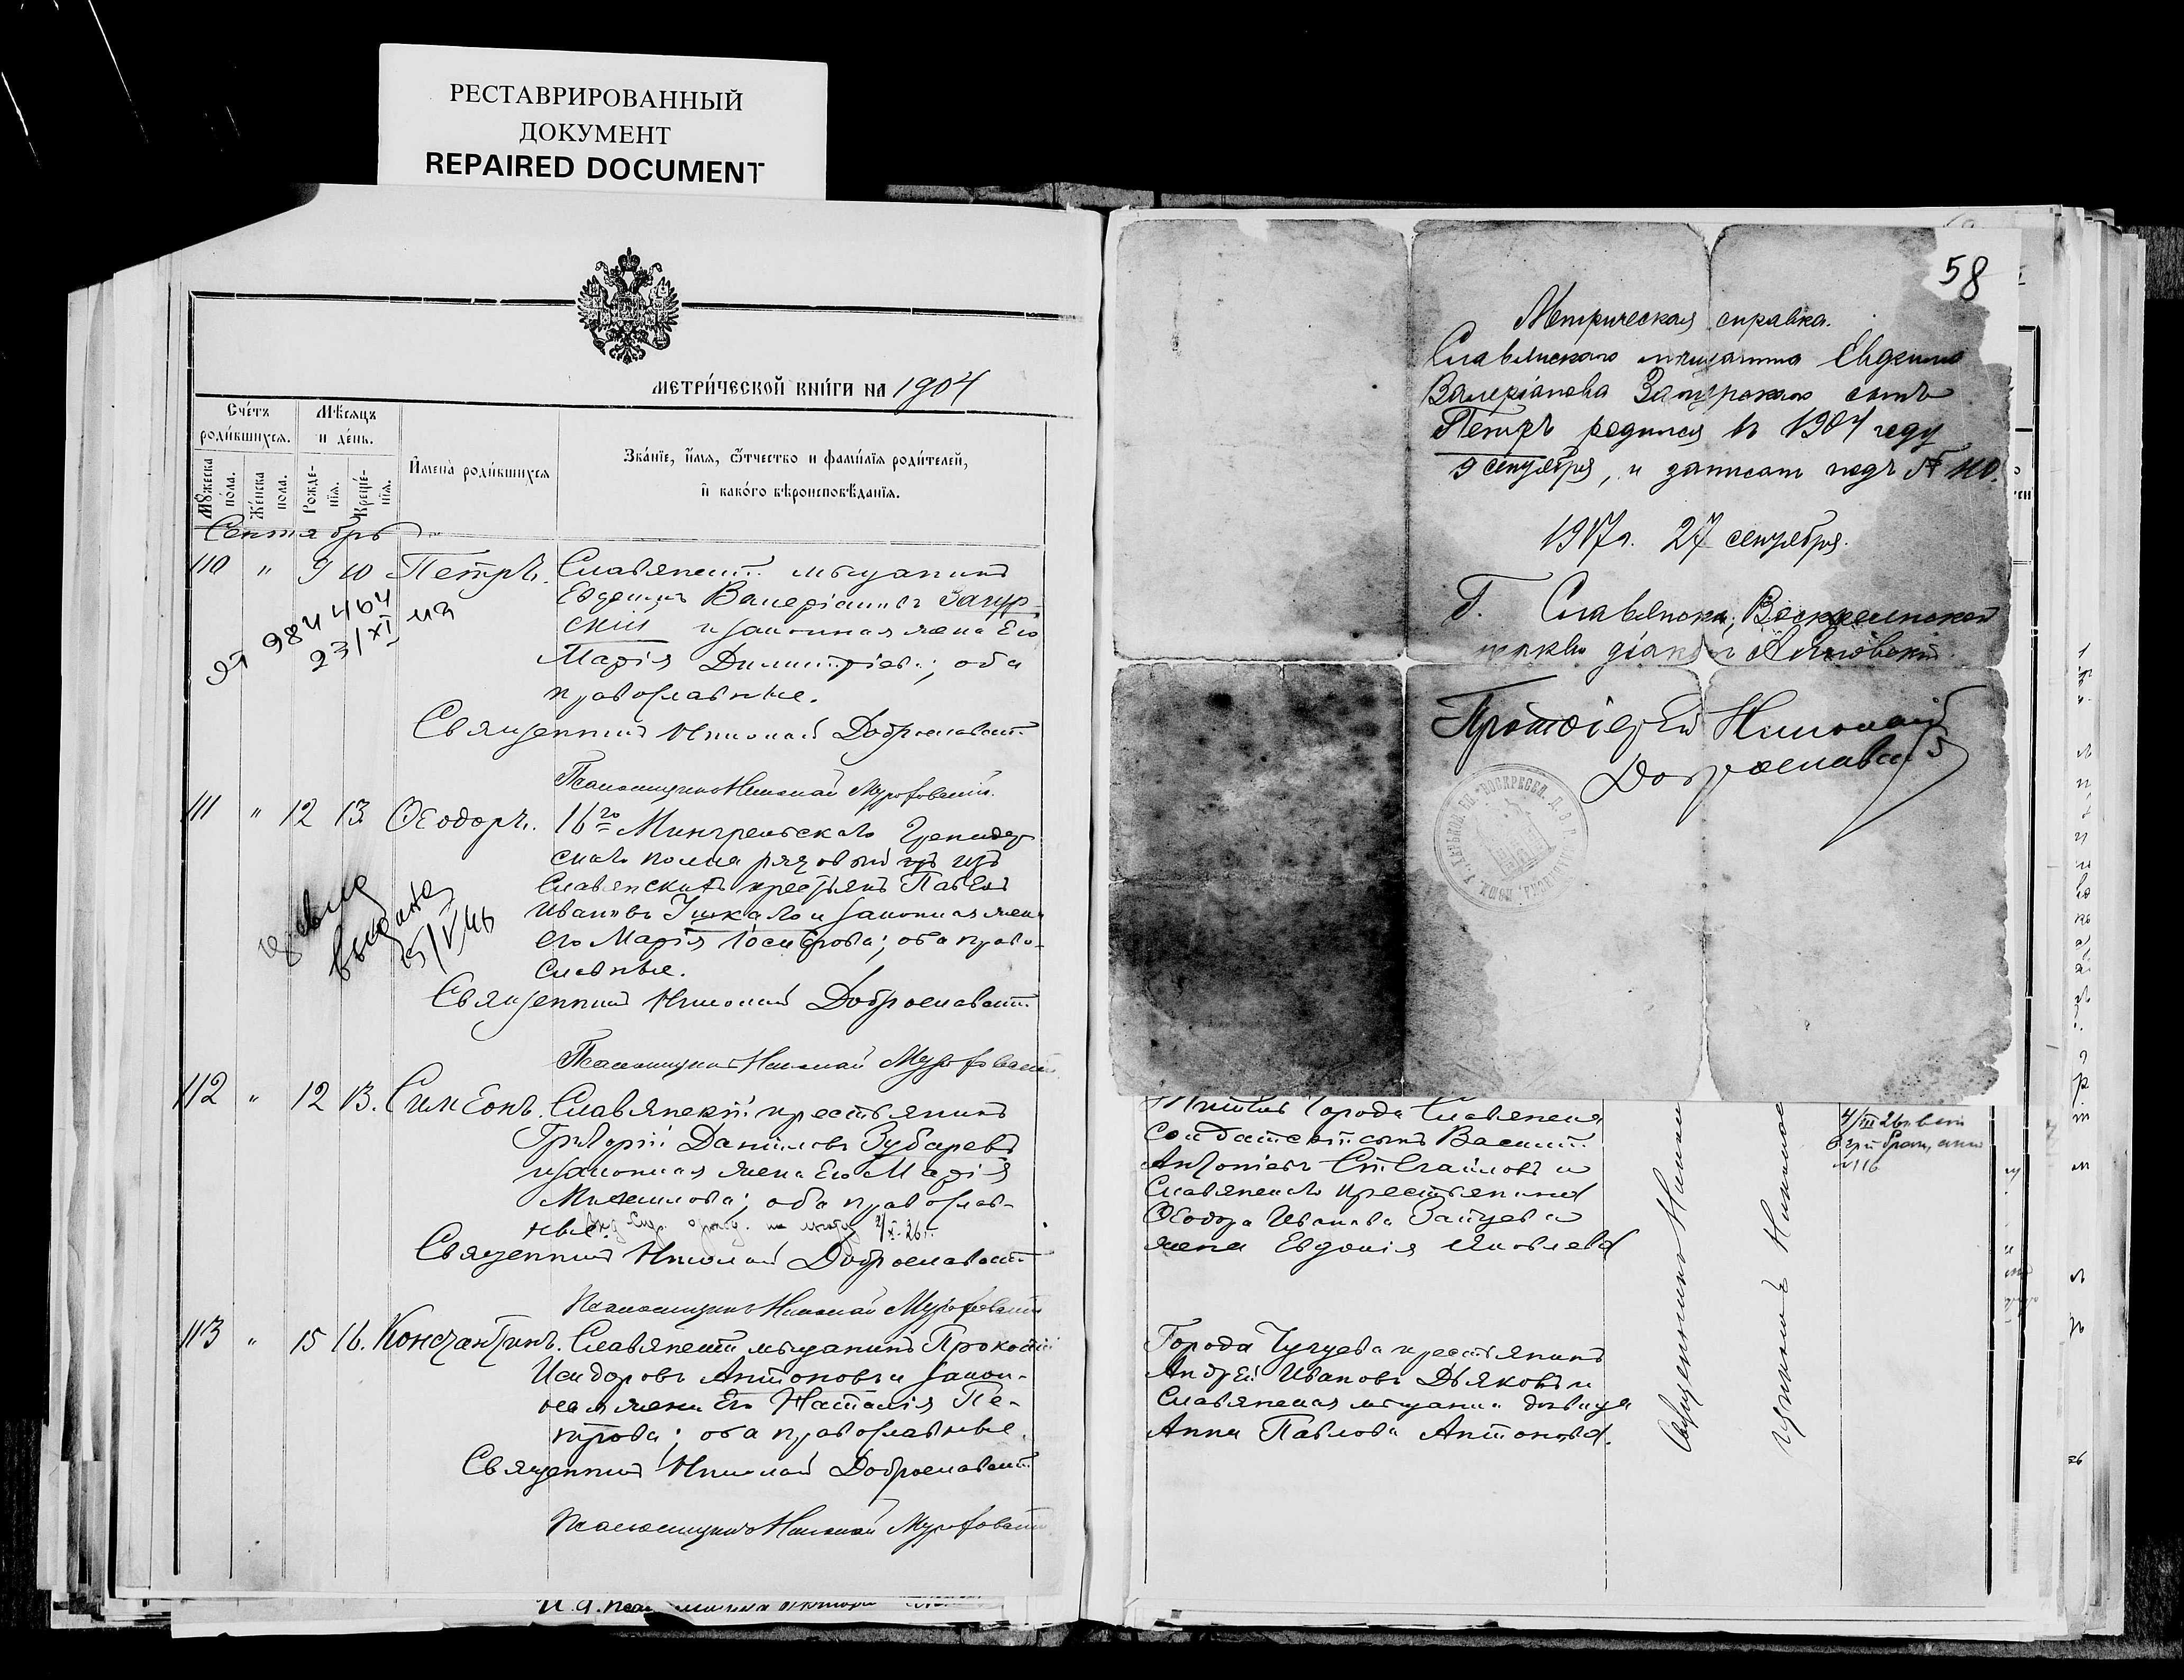 РЕСТАВРИРОВАННЫЙ
ДОКУМЕНТ
REPAIRED DOCUMENT
МЕТРИ́ЧЕСКОЙ КНИ́ГИ НА 1904
Сче́тъ
роди́вшихсѧ.
Мѣ́сѧцъ
и де́нь.
Мꙋжеска
по́ла.
Же́нска
пола.
Рожде-
нїѧ.
Креще́-
нїѧ.
И҆мена̀ роди́вшихсѧ
Зва́нїе, и҆́мѧ, ѻ҆́тчество и фами́лїѧ роди́телей,
и҆ како́гѡ вѣроисповѣ́данїѧ.
Сентябрь
110 " 9 10 Петръ. Славянскій мѣщанинъ
Евдокимъ Валеріановъ Загур-
скій и законная жена его
Марія Димитріева; оба
православные.
984464
23/XI
Священникъ Николай Доброславскій
Псаломщикъ Николай
111 " 12 13 Ѳеодоръ. 16го Мингрельскаго Гренадер-
скаго полка рядовой изъ
Славянскихъ крестьянъ Павелъ
Ивановъ Ушкало и законная жена
его Марія Іосифова; оба право-
славные.
выдана
Священникъ Николай Доброславскій
Псаломщикъ Николай
112 " 12 13. Симеонъ. Славянскій крестьянинъ
Григорій Даниловъ Зубаревъ
и законная жена его Марія
Михаилова; оба православ-
ные.
Священникъ Николай Доброславскій
Псаломщикъ Николай
113 " 15 16. Константинъ. Славянскій мѣщанинъ Прокопій
Исидоровъ Антоновъ и закон-
ная жена его Наталія Пе-
трова; оба православные.
Священникъ Николай Доброславскій
Псаломщикъ Николай
58
Метрическая справка.
Славянскаго мѣщанина Евдокима
Валеріанова Загурскаго сынъ
Петръ родился въ 1904 году
9 сентября, и записанъ подъ № 110.
1917 г. 27 сентября.
Г. Славянска, Воскресенской
церкви діаконъ
Протоіерей Николай
Доброславскій
города Славянска
Солдатскій сынъ Василій
Антоніевъ и
Славянскаго крестьянина
Ѳеодора Иванова Зайцева
жена Евдокія Яковлева
Города Чугуева крестьянинъ
Андрей Ивановъ Дьяковъ и
Славянская мѣщанка дѣвица
Анна Павлова Антонова.
Священникъ Николай